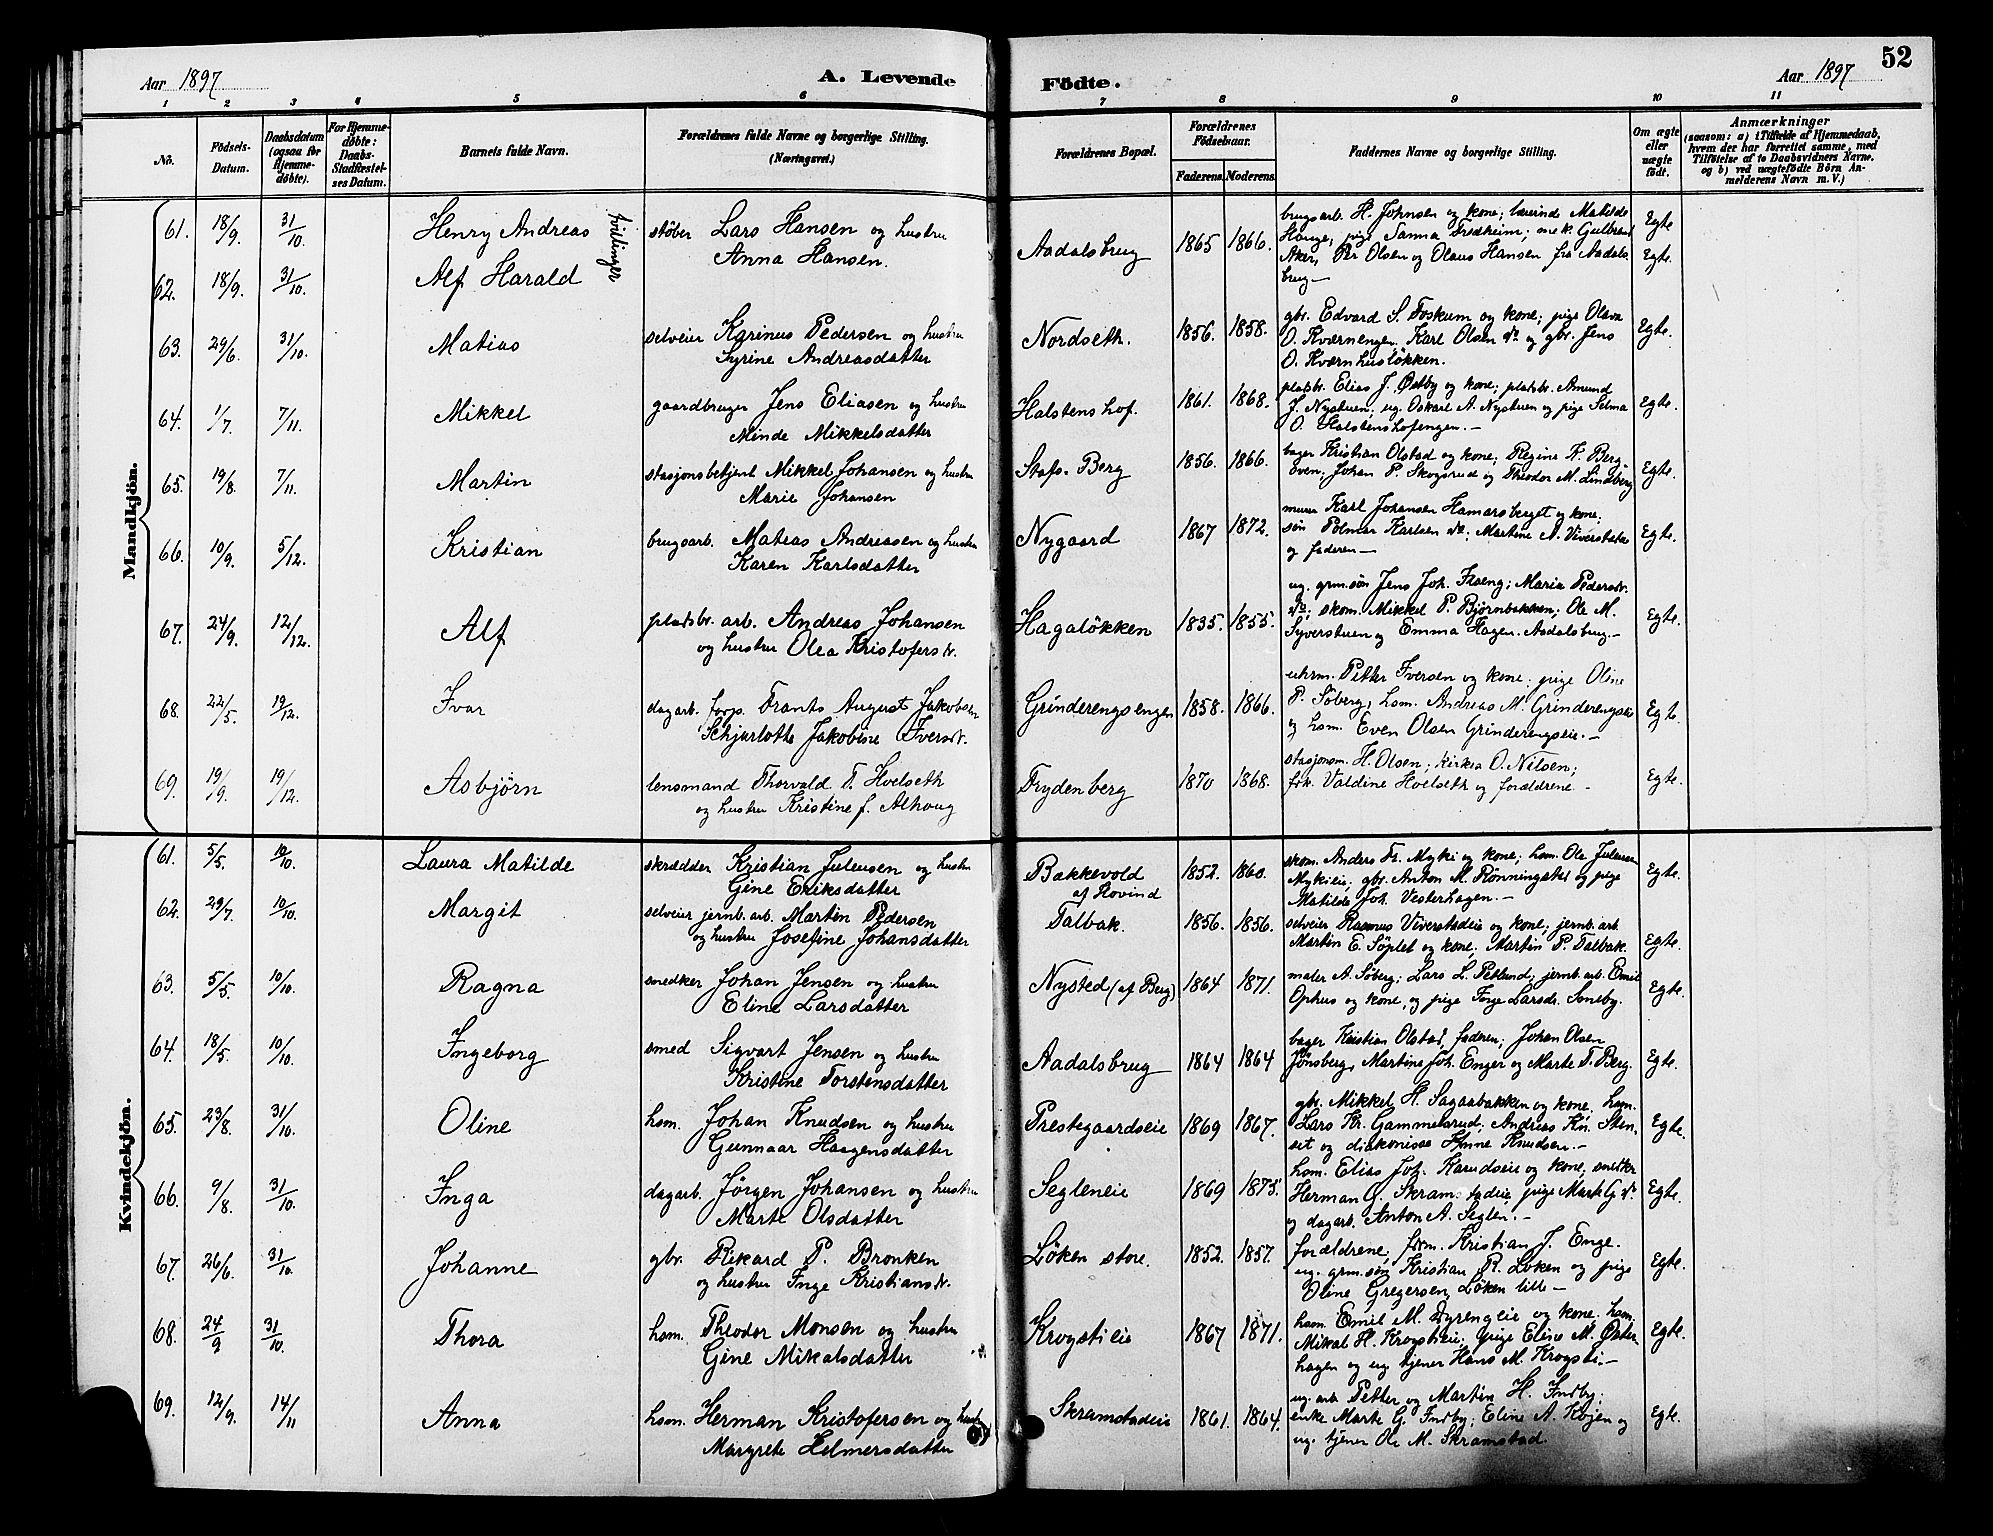 52
Aar 1897
A. Levende Födte.
Aar 1897
1 2 3 4 5 6 7 8 9 10 11
No.
Födsels-Datum.
Daabsdatum (ogsaa for Hjemme-döbte).
For Hjemme-döbte: Daabs-Stadfæstel-ses Datum.
Barnets fulde Navn.
Forældrenes fulde Navne og borgerlige Stilling.
(Næringsvei.)
Forældrenes Bopæl.
Forældrenes Födselsaar.
Faderens. Moderens.
Faddernes Navne og borgerlige Stilling.
Om ægte eller uægte födt.
Anmærkninger
(saasom: a) i Tilfælde af Hjemmedaab, hvem der har forrettet samme, med Tilföielse af to Daabsvidners Navne, og b) ved uægtefödte Börn Anmelderens Navn m. V.)
Mandkjön.
61. 18/9. 31/10. Henry Andreas tvillinger støber Lars Hansen og hustru Anna Hansen. Aadalsbrug 1865 1866. brugsarb. H. Johnsen og kone; lærerinde Matilde Hauge, pige Sanna Fredheim; Aker, Per Olsen og Olaus Hansen fra Aadalsbrug — Egte
62. 18/9. 31/10. Alf Harald Egte.
63. 29/6. 31/10. Matias selveier Karinus Pedersen og hustru Syrine Andreasdatter Nordseth. 1856. 1858. gbr. Edvard S. Foskum og kone; pige Olava O. Kværnengen, Karl Olsen do og gbr. Jens O. Kværnhusløkken. Egte.
64. 1/7. 7/11. Mikkel gaardbruger Jens Eliasen og hustru Minde Mikkelsdatter Halstenshof. 1861. 1868. pladsbr. Elias J. Østby og kone; pladsbr. Amund J. Nystuen, ug. Oskarl A. Nystuen og pige Selma O. Halstenshofengen. — Egte.
65. 19/8. 7/11. Martin stasjonsbetjent Mikkel Johansen og hustru Marie Johansen Staps. Berg 1856. 1866. bager Kristian Olstad og kone; Regine K. Berg oven; Johan P. Skogsrud og Theodor M. Lindberg Egte.
66. 10/9. 5/12. Kristian brugsarb. Matias Andreasen og hustru Karen Karlsdatter Nygaard 1867 1872. murer Karl Johansen Hamarsberget og kone; søn Polmar Karlsen do; Martine A. Viverstadeie og faderen — Egte.
67. 24/9. 12/12. Alf pladsbr. arb. Andreas Johansen og hustru Olea Kristofersdr. Hagaløkken 1835. 1855. ug. grm.søn Jens Joh. Floeng; Maria Pedersdr. do; skom. Mikkel P. Bjørnbakken; Ole M. Syverstuen og Emma Hagen. Aadalsbrug. — Egte.
68. 22/5. 19/12. Ivar dagarb. forp. Frants August Jakobsen Schjarlotte Jakobine Iversdr. Grinderengsengen 1858. 1866. uhrm. Petter Iversen og kone; pige Oline P. Söberg, hsm. Andreas M. Grinderengseie og hsm. Even Olsen Grinderengseie. — Egte.
69. 19/9. 19/12. Asbjörn lensmand Thorvald T. Hoelseth og hustru Kristine f. Alhaug Frydenberg 1870 1868. stasjonsm. H. Olsen; kirkes. O. Nilsen; frk. Valdine Hoelseth og forældrene — Egte.
Kvindekjön.
61. 5/5. 10/10. Laura Matilde skrædder Kristian Juleusen og hustru Gine Eriksdatter Bakkevold af Hovind 1852. 1860. skom. Anders Fr. Myki og kone; hsm. Ole Juleusen Mykieie; gbr. Anton M. Rönningstel og pige Matilde Joh. Vesterhagen. — Egte.
62. 29/7. 10/10. Margit selveier jernb. arb. Martin Pedersen og hustru Josefine Johansdatter Talbak. 1856. 1856. selveier Rasmus Viverstadeie og kone; jernb. arb. Martin E. Söplet og kone; Martin P. Talbak. Egte.
63. 5/5. 10/10. Ragna snedker Johan Jensen og hustru Eline Larsdatter Nysted (af Berg) 1864 1871. maler A. Söberg; Lars L. Petlund; jernb. arb. Emil Ophus og kone, og pige Inge Larsdr. Smeby. Egte.
64. 18/5. 10/10. Ingeborg smed Sigvart Jensen og hustru Kristine Torstensdatter Aadalsbrug 1864 1864 bager Kristian Olstad, faderen; Johan Olsen Jønsberg, Martine Joh. Enger og Marte T. Berg. Egte.
65. 23/8. 31/10. Oline hsm. Johan Knudsen og hustru Gunnaar Haagensdatter Prestegaardseie 1869 1867. gbr. Mikkel H. Sagaabakken og kone, hsm. Lars Kr. Gammelsrud, Andreas Kn. Stenset og diakonisse Anne Knudsen. — Egte.
66. 9/8. 31/10. Inga dagarb. Jörgen Johansen og hustru Marte Olsdatter Segleneie 1869 1875. hsm. Elias Joh. Karudseie og kone, snedker Herman G. Skramstadeie, pige Marte G. do og dagarb. Anton A. Seglen. — Egte.
67. 26/6. 31/10. Johanne gbr. Rikard P. Bronken og hustru Inge Kristiansdr. Löken store. 1852. 1857. forældrene, frm. Kristian J. Enge. ug. grm.søn Kristian R. Løken og pige Oline Gregersen, Løken lille — Egte.
68. 24/9 31/10. Thora hsm. Theodor Monsen og hustru Gine Mikalsdatter Krogstieie 1867 1871. hsm. Emil M. Dyrengeie og kone. hsm. Mikal H. Krogstieie; pige Eline M. Østerhagen og ug. tjener Hans M. Krogsti. — Egte.
69. 12/9. 14/11 Anna hsm. Herman Kristofersen og hustru Margrete Helmersdatter Skramstadeie 1861. 1864. ug. arb. Petter og Martin H. Indby; enke Marte G. Indby; Eline A. Kojen og ug. tjener Ole M. Skramstad. Egte.